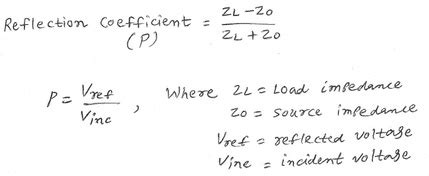 Reflection Coefficient = ZL-ZO / ZL+ZO
(P)
P = Vref / Vinc , Where ZL = Load impedance
ZO = source impedance
Vref = reflected voltage
Vinc = incident voltage